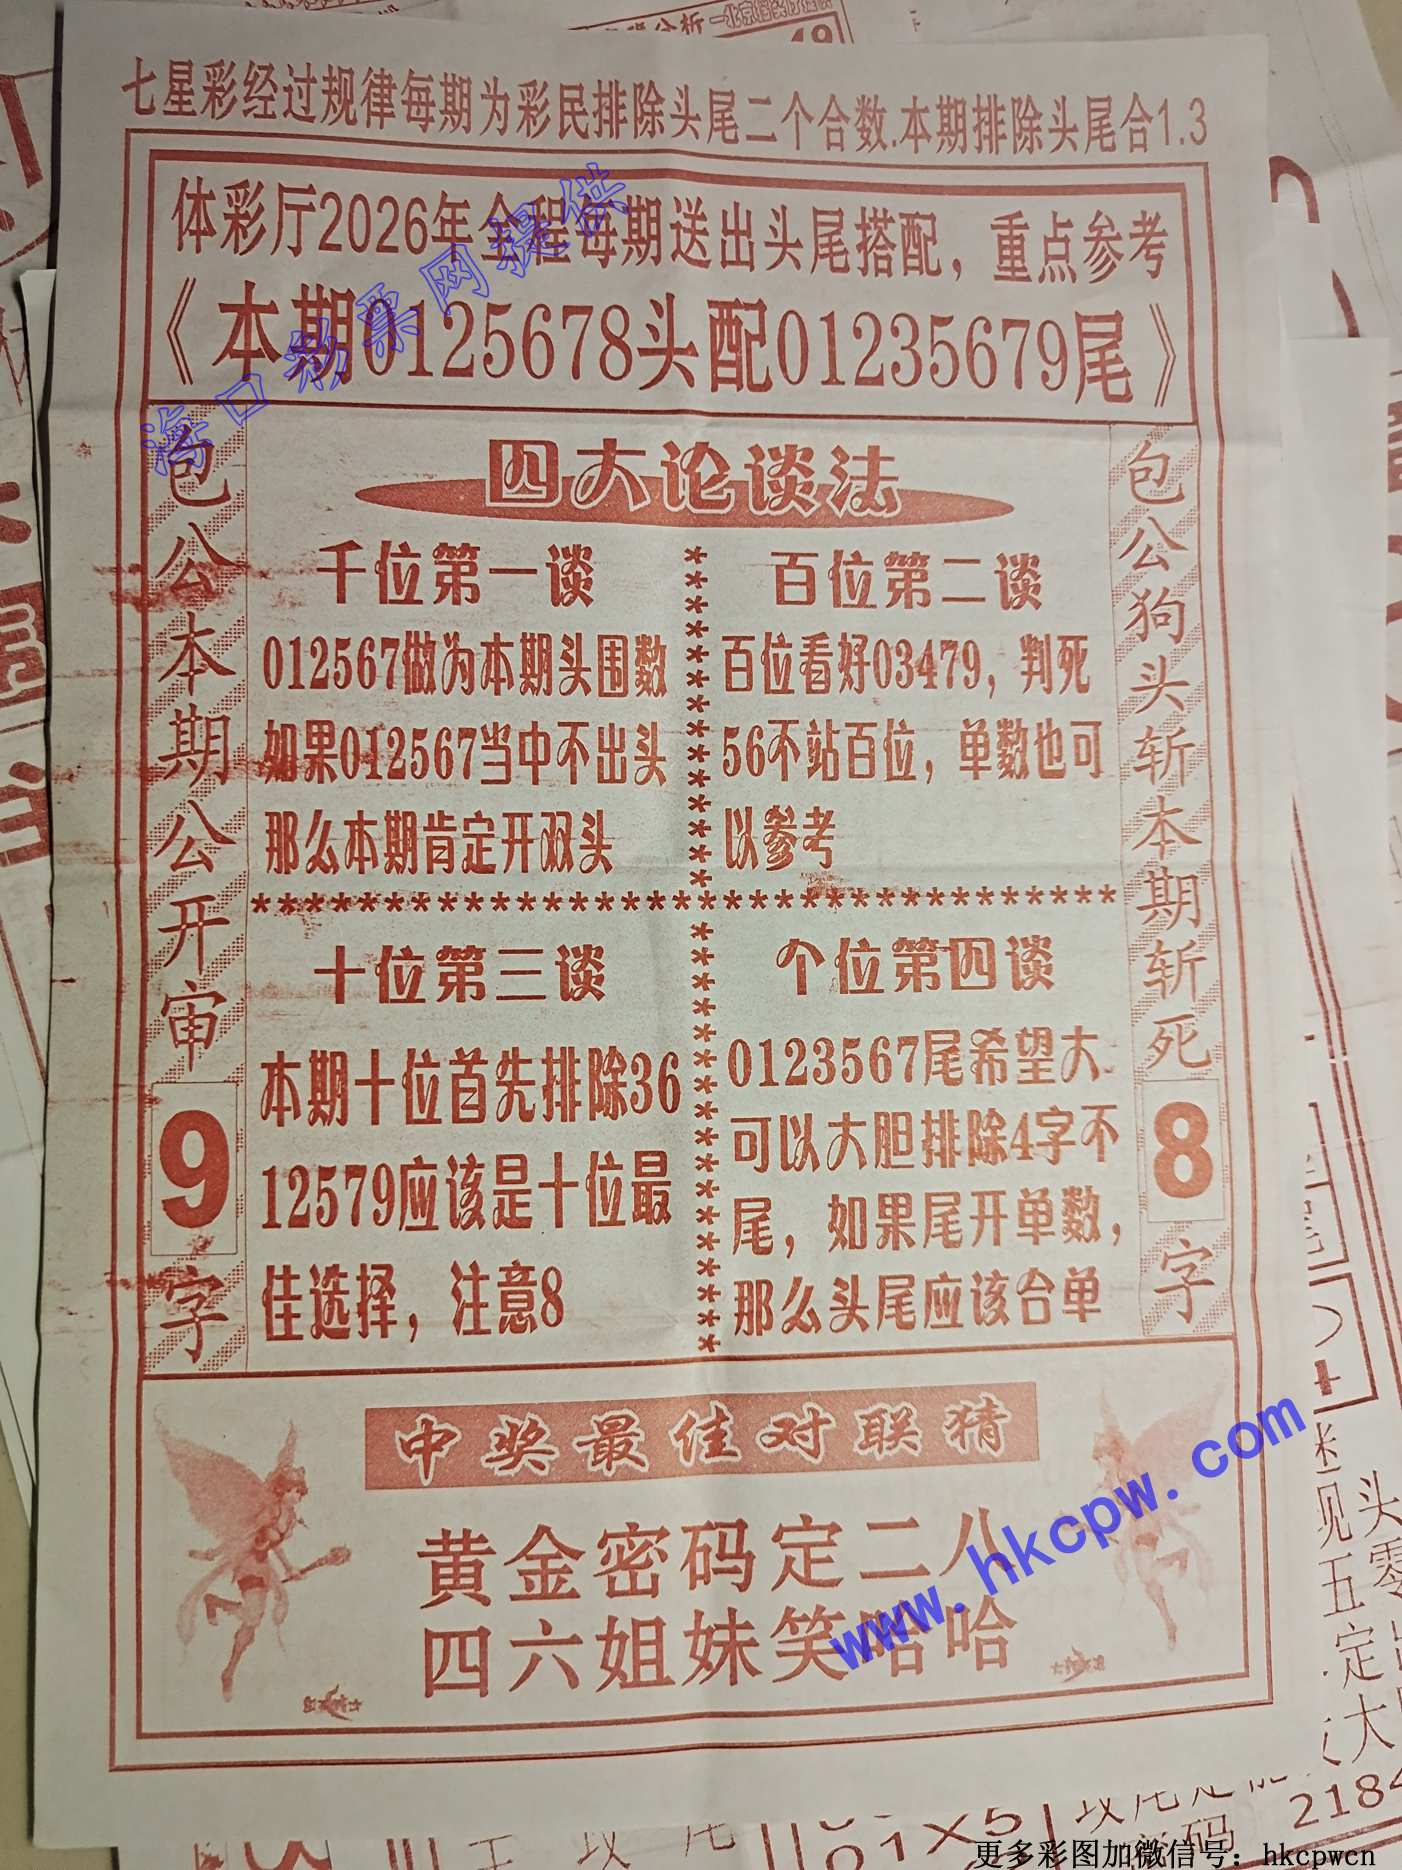 七星彩经过规律每期为彩民排除头尾二个合数.本期排除头尾合1.3
体彩厅2026年全程每期送出头尾搭配，重点参考
《本期0125678头配01235679尾》
海口彩票网提供
包公本期公开审9字
四大论谈法
千位第一谈
012567做为本期头围数
如果012567当中不出头
那么本期肯定开双头
百位第二谈
百位看好03479，判死
56不站百位，单数也可
以参考
十位第三谈
本期十位首先排除36
12579应该是十位最
佳选择，注意8
个位第四谈
0123567尾希望大
可以大胆排除4字不
尾，如果尾开单数，
那么头尾应该合单
包公狗头斩本期斩死8字
中奖最佳对联猜
黄金密码定二八
四六姐妹笑哈哈
www.hkcpw.com
2184
更多彩图加微信号：hkcpwcn